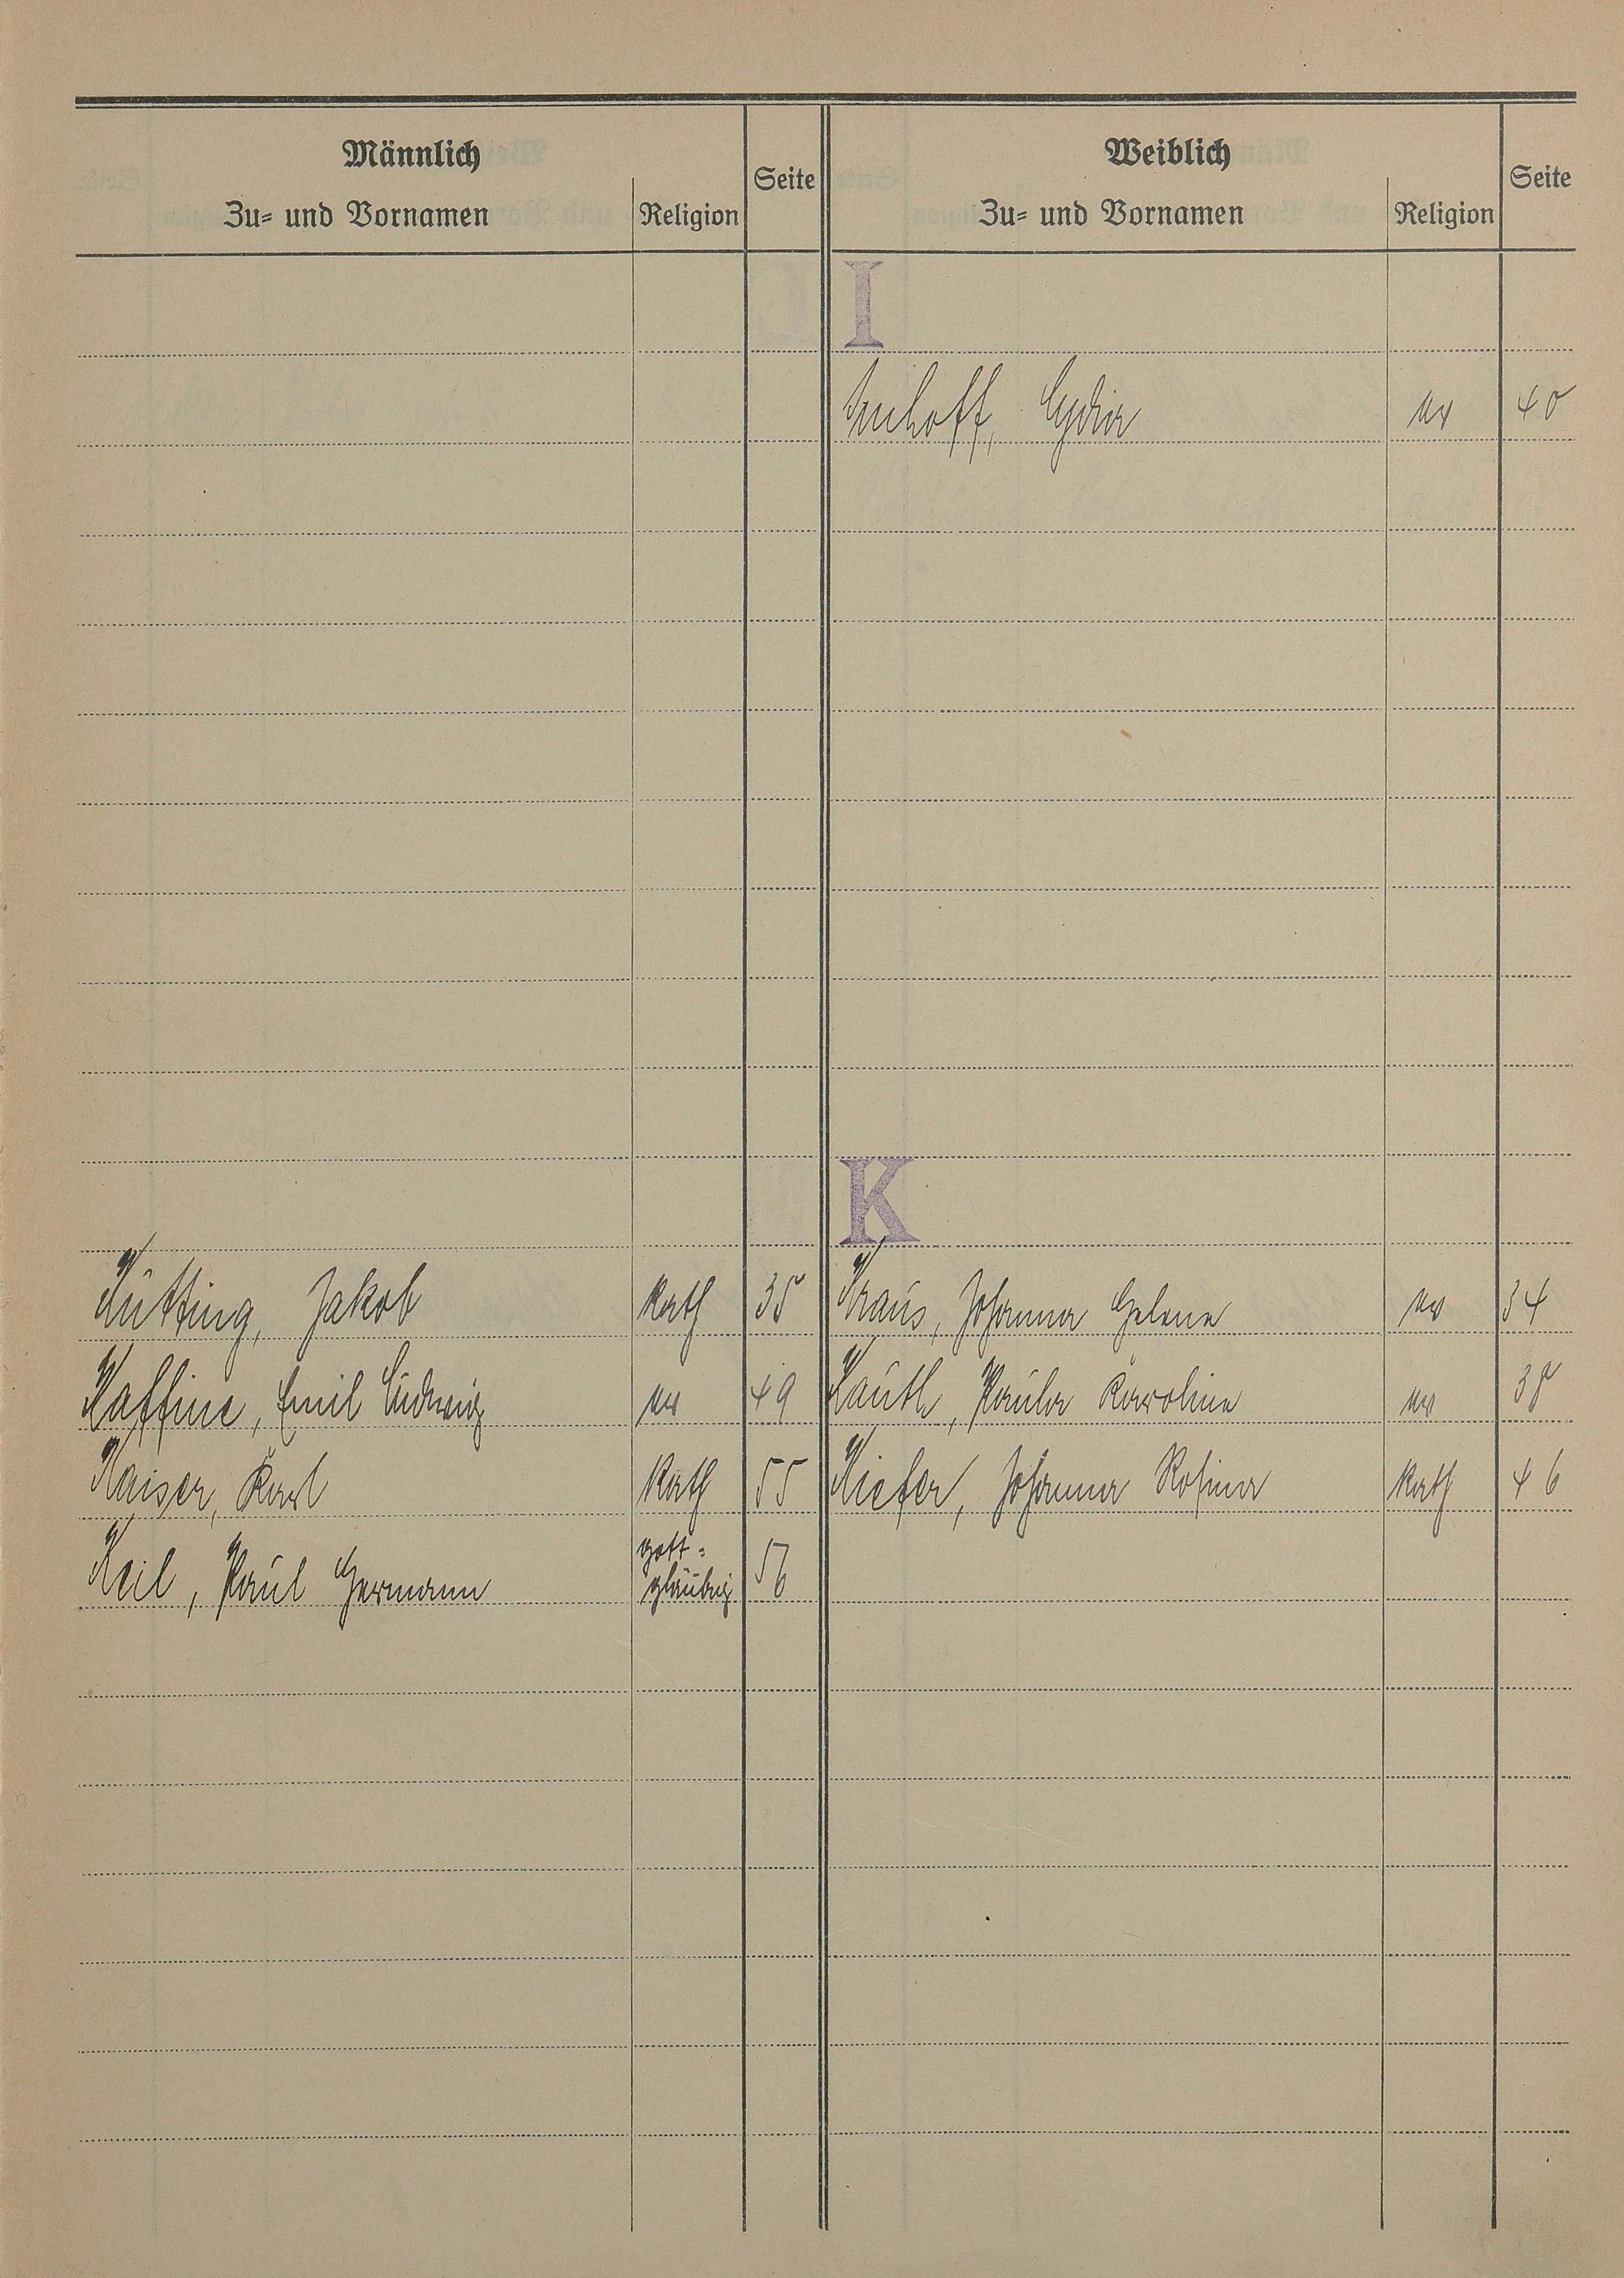 Männlich
Zu- und Vornamen
Religion
Seite
Weiblich
Zu- und Vornamen
Religion
Seite
I
Imhoff, Lydia ev 40
K
Kütting, Jakob Kath 35
Kraus, Johanna Helene ev 34
Kaffine, Emil Ludwig ev 49
Kauth, Paula Karoline ev 38
Kaiser, Karl Kath 55
Kiefer, Johanna Rosina Kath 46
Keil, Paul Hermann gott-
gläubig 56